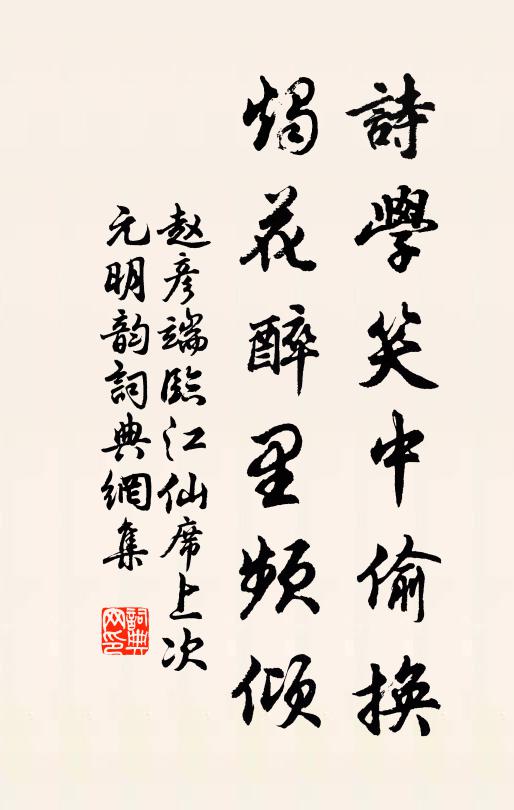 詩學笑中偷換
燭花醉里頻傾
赵彥端臨江仙席上次
元明韵詞典網集
詞典
网印